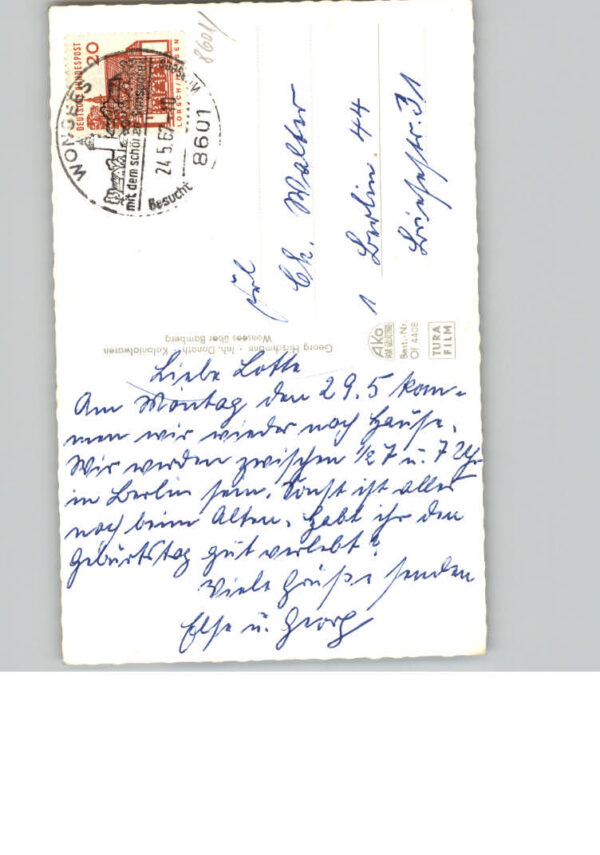 Liebe Lotte
Am Montag den 29.5 kom-
men wir wieder nach Hause.
Wir werden zwischen 1/2 7 u. 7 Uhr
in Berlin sein. Sonst ist alles
noch beim Alten. Habt ihr den
Geburtstag gut verlebt?
Viele Grüße senden
Else u. Georg
Frl
Ch. Walter
1 Berlin 44
Briesestr. 31
DEUTSCHE BUNDESPOST
20
LORSCH/HESSEN
WONSEES
mit dem schönen
Besucht
24.5.67
8601
8601
Georg Hirschmann · Inh. Donath · Kolonialwaren
Wonsees über Bamberg
AKO
Best.-Nr.
Of 4408
TURA
FILM